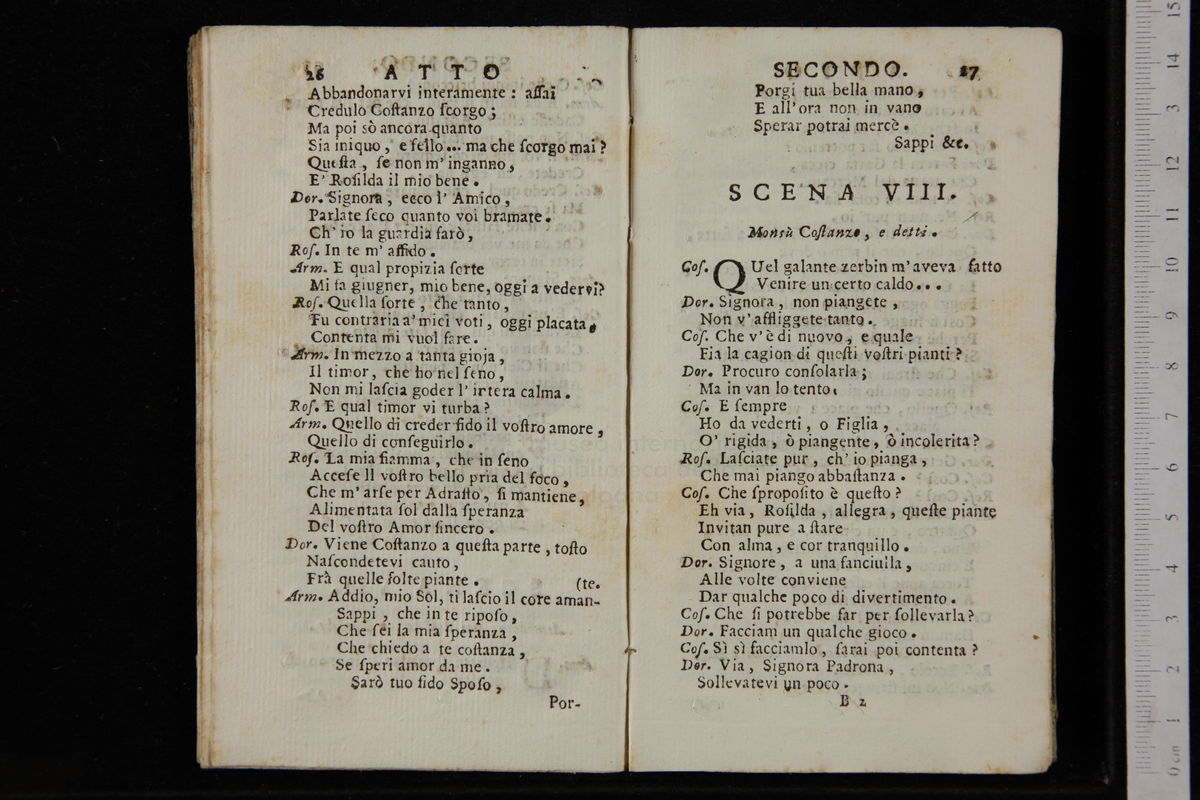 26 ATTO
Abbandonarvi interamente : aſſai
Credulo Coſtanzo ſcorgo ;
Ma poi sò ancora quanto
Sia iniquo , e fello ... ma che ſcorgo mai ?
Queſta , ſe non m' inganno ,
E' Roſilda il mio bene .
Dor. Signora , ecco l' Amico ,
Parlate ſeco quanto voi bramate .
Ch' io la guardia farò ,
Roſ. In te m' affido .
Arm. E qual propizia ſorte
Mi fa giugner, mio bene, oggi a vedervi?
Roſ. Quella ſorte , che tanto ,
Fu contraria a' miei voti , oggi placata ,
Contenta mi vuol fare .
Arm. In mezzo a tanta gioja ,
Il timor , che ho nel ſeno ,
Non mi laſcia goder l' intera calma .
Roſ. E qual timor vi turba ?
Arm. Quello di creder fido il voſtro amore ,
Quello di conſeguirlo .
Roſ. La mia fiamma , che in ſeno
Acceſe Il voſtro bello pria del foco ,
Che m' arſe per Adraſto , ſi mantiene ,
Alimentata ſol dalla ſperanza
Del voſtro Amor ſincero .
Dor. Viene Coſtanzo a queſta parte , toſto
Naſcondetevi cauto ,
Frà quelle folte piante . (te.
Arm. Addio, mio Sol, ti laſcio il core aman-
Sappi , che in te ripoſo ,
Che ſei la mia ſperanza ,
Che chiedo a te coſtanza ,
Se ſperi amor da me .
Sarò tuo fido Spoſo ,
Por-
SECONDO. 27
Porgi tua bella mano ,
E all' ora non in vano
Sperar potrai mercè .
Sappi &c.
SCENA VIII.
Monsù Coſtanzo , e detti .
Coſ. QUel galante zerbin m' aveva fatto
Venire un certo caldo ...
Dor. Signora , non piangete ,
Non v' affliggete tanto .
Coſ. Che v' è di nuovo , e quale
Fia la cagion di queſti voſtri pianti ?
Dor. Procuro conſolarla ;
Ma in van lo tento .
Coſ. E ſempre
Ho da vederti , o Figlia ,
O' rigida , ò piangente , ò incolerita ?
Roſ. Laſciate pur , ch' io pianga ,
Che mai piango abbaſtanza .
Coſ. Che ſpropoſito è queſto ?
Eh via , Roſilda , allegra , queſte piante
Invitan pure a ſtare
Con alma , e cor tranquillo .
Dor. Signore , a una fanciulla ,
Alle volte conviene
Dar qualche poco di divertimento .
Coſ. Che ſi potrebbe far per ſollevarla ?
Dor. Facciam un qualche gioco .
Coſ. Sì sì facciamlo , ſarai poi contenta ?
Dor. Via , Signora Padrona ,
Sollevatevi un poco .
B 2